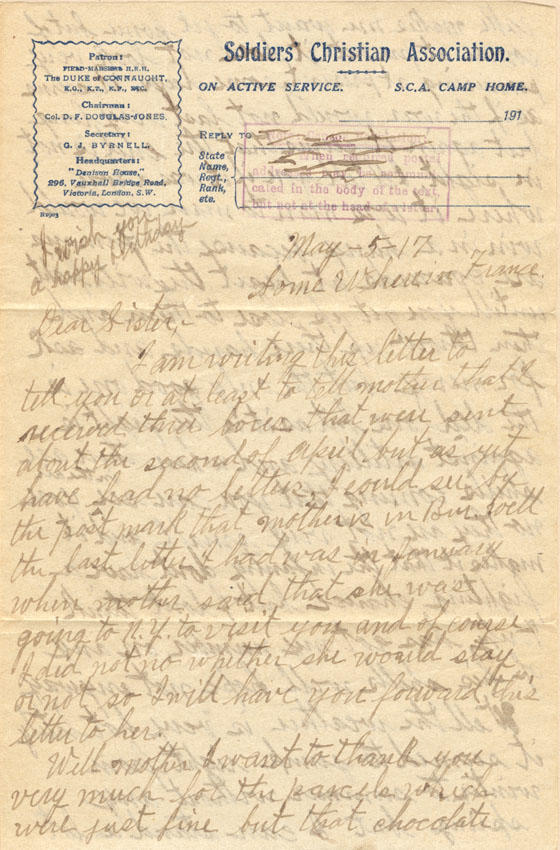 Patron:
FIELD-MARSHAL H.R.H.
The DUKE of CONNAUGHT,
K.G., K.T., K.P., ETC.
Chairman:
Col. D. F. DOUGLAS-JONES.
Secretary:
G. J. BYRNELL.
Headquarters:
"Denison House,"
296, Vauxhall Bridge Road,
Victoria, London, S.W.
Soldiers' Christian Association.
ON ACTIVE SERVICE. S.C.A. CAMP HOME.
191
REPLY TO
State
Name,
Regt.,
Rank,
etc.
When required postal
address may be communi-
cated in the body of the text,
but not at the head of a letter.
I wish you
a happy birthday
May-5-17
Some Where in France.
Dear Sister,-
I am writing this letter to
tell you or at least to tell mother that I
received three boxes that were sent
about the second of April but as yet
have had no letters, I could see by
the post mark that mother is in Bur. well
the last letter I had was in January
when mother said that she was
going to N.Y. to visit you and of course
I did not no whether she would stay
or not, so I will have you forward this
letter to her.
Well mother I want to thank you
very much for the parcels which
were just fine but that chocolate